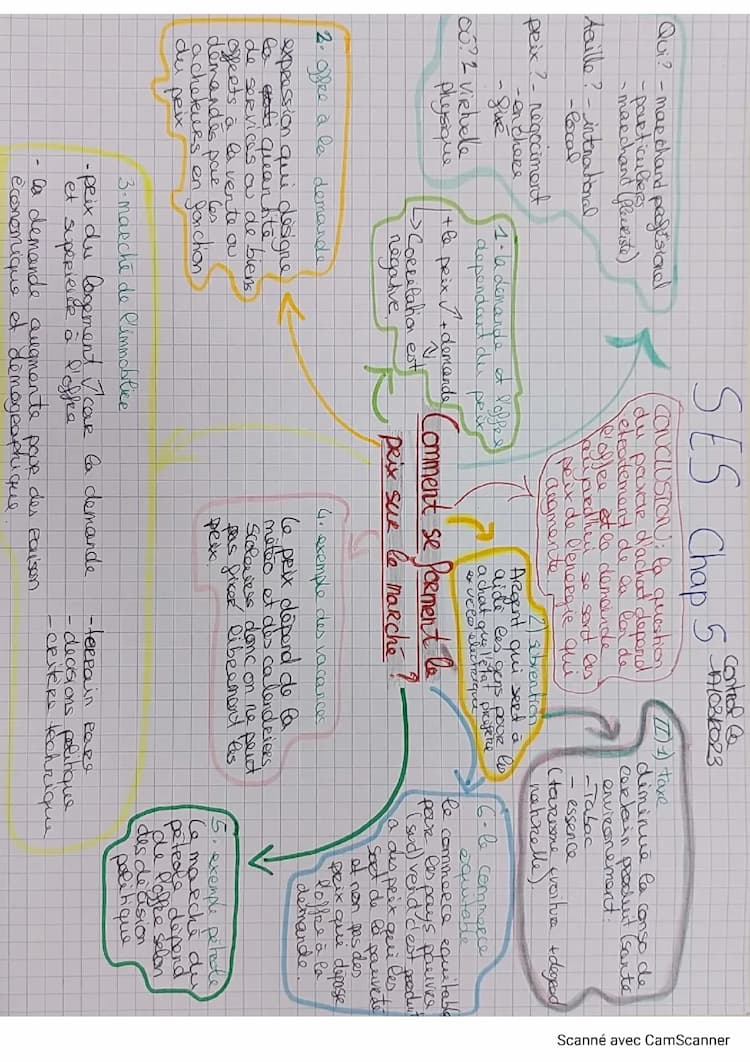 SES Chap 5
contrôle
17/03/2023
Comment se forment le
prix sur le marché ?
Qui? - marchand profesional
- particuliers
- marchant (fleuriste)
taille? - international
- local
prix? - negociment
- enchere
- fixe
où? 1 virtuelle
physique
1- la demande et l'offre
dependant du prix
+ le prix ↗ + demande ↘
↳ Correlation est
négative.
2- offre à la demande
expression qui désigne
la quantité
de services ou de biens
offerts à la vente ou
demandés par les
acheteurs en fonction
du prix
3- marché de l'immobilier
- prix du logement ↗ car la demande
est superieur à l'offre
- la demande augmente par des raison
économique et démographique.
- terrain rare
- décisions politique
- critère technique
4. exemple des vacances
Le prix dépend de la
météo et des calendriers
scolaires donc on ne peut
pas fixer librement les
prix.
5. exemple pétrole
Le marché du
pétrole dépend
de l'offre selon
des décision
politique
6. le commerce
équitable
le commerce équitable
pour les pays pauvres
(sud) vend c'est produit
a du prix qui les
sort de la pauvreté
et non pas des
prix que dépose
l'offre à la
demande.
II 1) taxe
diminue la conso de
certain produit (santé
environement:
- Tabac
- essence
(taxe voiture + degrad
naturelle)
2) subvention
Argent qui sert à
aide les gens pour la
achat que l'état préfère
ex: vélo électrique
conclusion: la question
du pouvoir d'achat dépend
étroitement de la loi de
l'offre et la demande
aujourd'hui se sont les
prix de l'énergie qui
augmente.
Scanné avec CamScanner